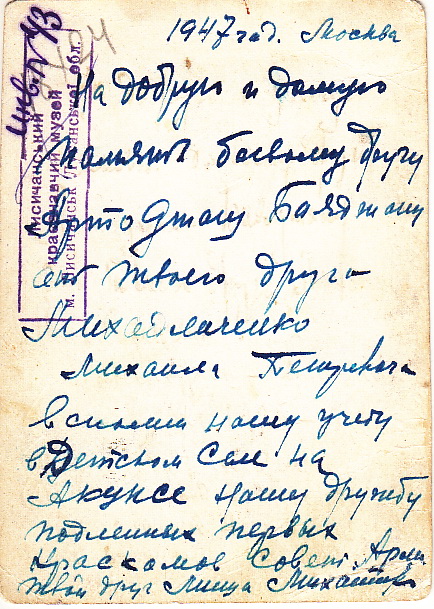 1947 год. Москва
На добрую и долгую
память боевому другу
от твоего друга
Михайличенко
Михаила Петровича
вспомни нашу учебу
в Детском Селе на
Акунсе нашу дружбу
подленных первых
Краскомов Совет Арми
твой друг Миша
инв. п 43
Лисичанський
краєзнавчий музей
м. Лисичанськ Луганської обл.